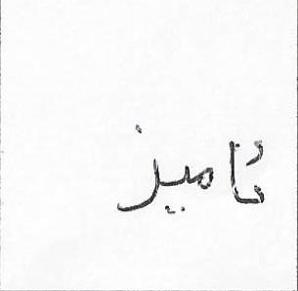 ئامیز